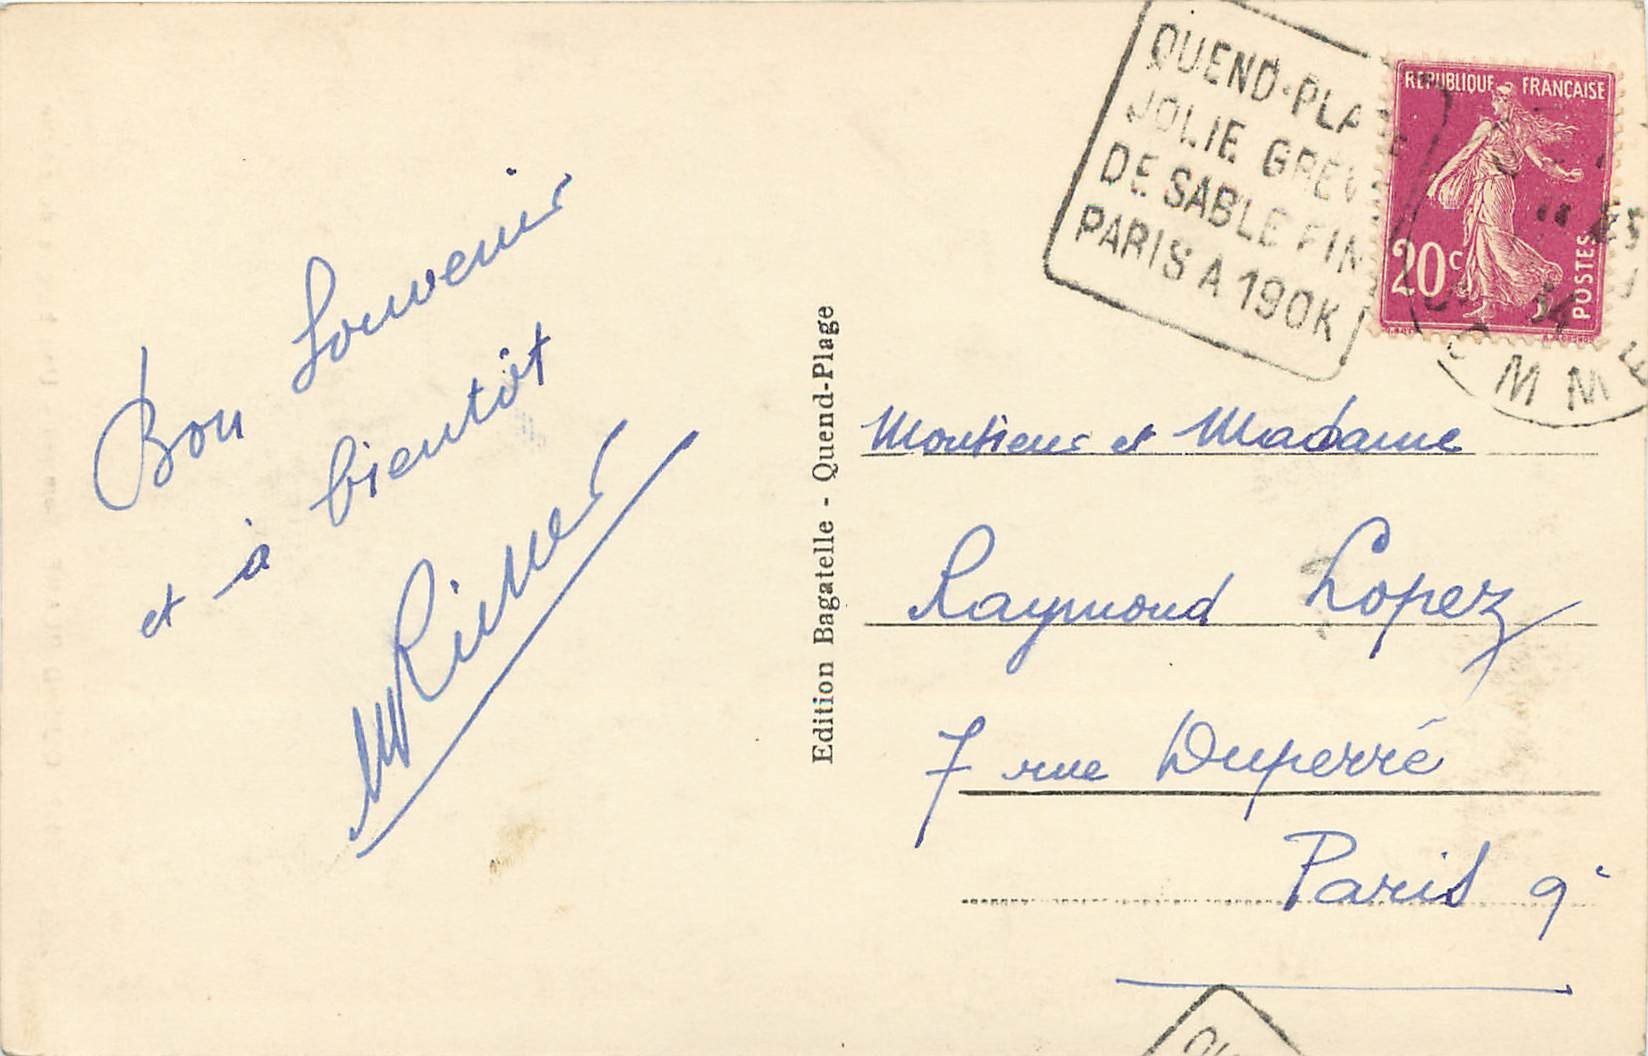 Bon Souvenir
et à bientôt
Edition Bagatelle - Quend-Plage
QUEND-PLA
JOLIE GREV
DE SABLE FIN
PARIS A 190K
REPUBLIQUE FRANÇAISE
20c
POSTES
34
OMME
Monsieur et Madame
Raymond Lopez
7 rue Duperré
Paris 9e
QU